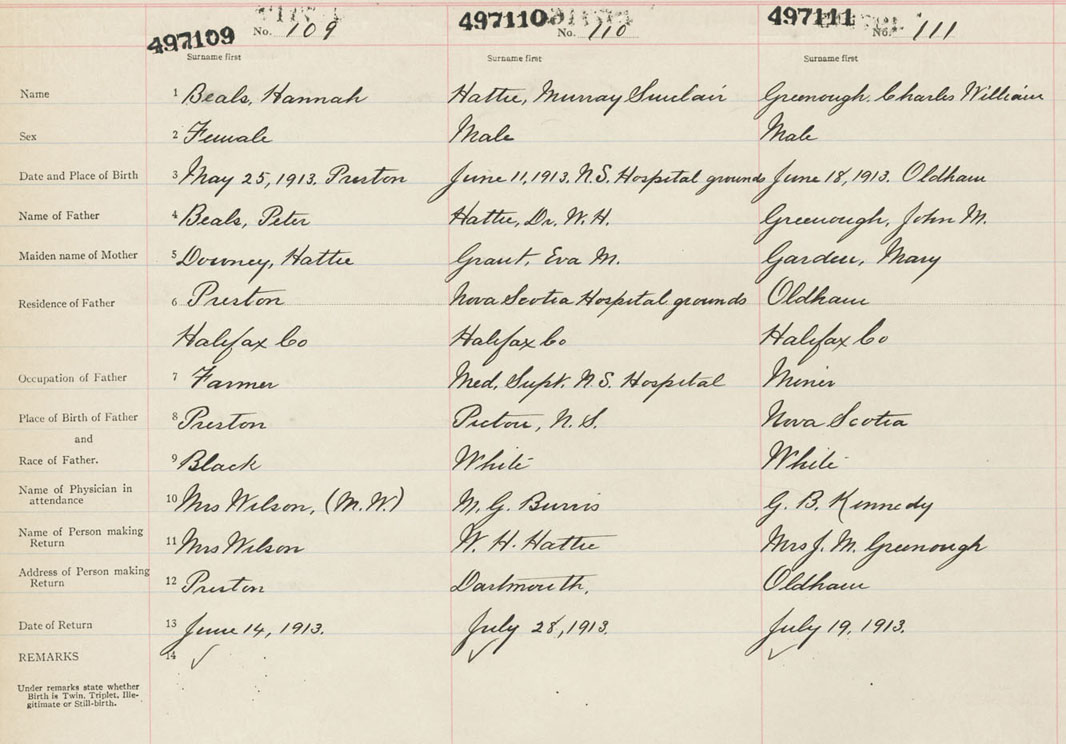 497109 No. 109 497110 No. 110 497111 No. 111
Surname first Surname first Surname first
Name 1 Beals, Hannah Hattie, Murray Sinclair Greenough, Charles William
Sex 2 Female Male Male
Date and Place of Birth 3 May 25, 1913. Preston June 11, 1913. N.S. Hospital grounds June 18, 1913. Oldham
Name of Father 4 Beals, Peter Hattie, Dr. W. H. Greenough, John M.
Maiden name of Mother 5 Downey, Hattie Grant, Eva M. Garden, Mary
Residence of Father 6 Preston Nova Scotia Hospital grounds Oldham
Halifax Co Halifax Co Halifax Co
Occupation of Father 7 Farmer Med. Supt. N.S. Hospital Miner
Place of Birth of Father 8 Preston Pictou, N.S. Nova Scotia
and
Race of Father. 9 Black White White
Name of Physician in
attendance 10 Mrs Wilson, (M.W.) M. G. Burris G. B. Kennedy
Name of Person making
Return 11 Mrs Wilson W. H. Hattie Mrs J. M. Greenough
Address of Person making
Return 12 Preston Dartmouth, Oldham
Date of Return 13 June 14, 1913. July 28, 1913. July 19, 1913.
REMARKS 14 ✓ ✓ ✓
Under remarks state whether
Birth is Twin, Triplet, Ille-
gitimate or Still-birth.